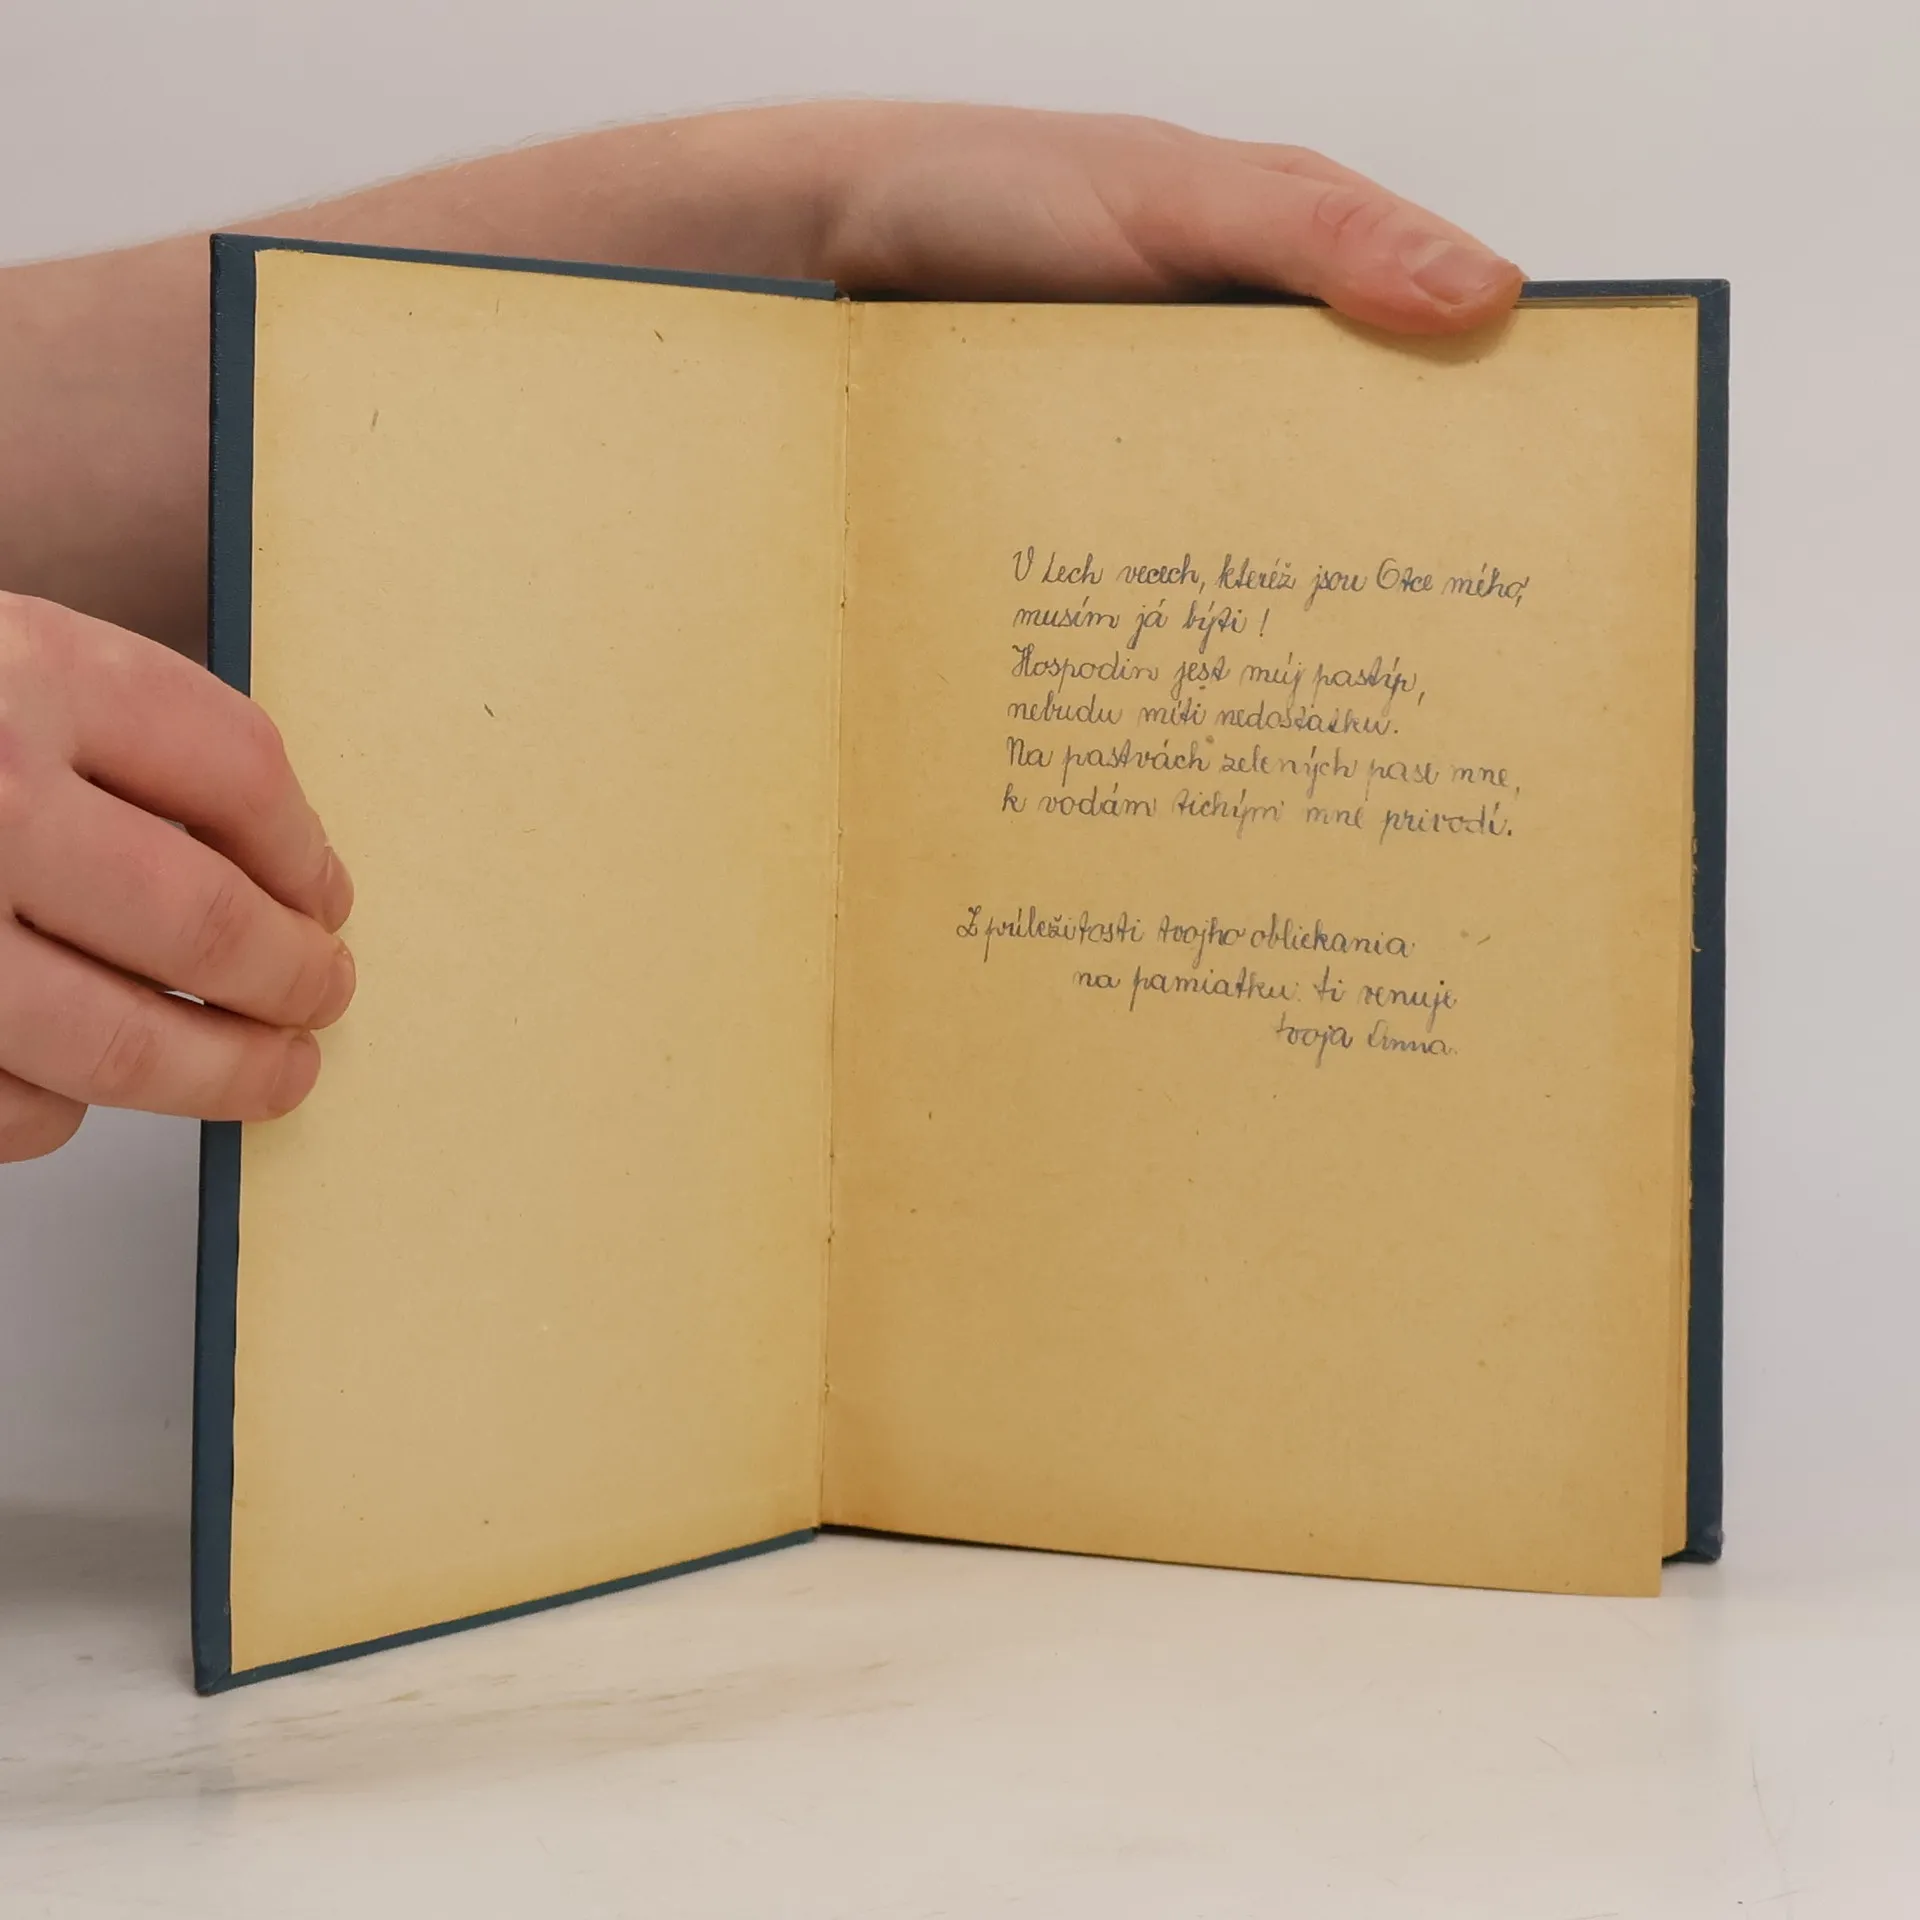 V tech vecech, kteréž jsou Otce mého,
musím já býti!
Hospodin jest múj pastýr,
nebudu míti nedostatku.
Na pastvách zelených pase mne,
k vodám tichým mne privodí.
Z príležitosti tvojho obliekania
na pamiatku ti venuje
tvoja Anna.